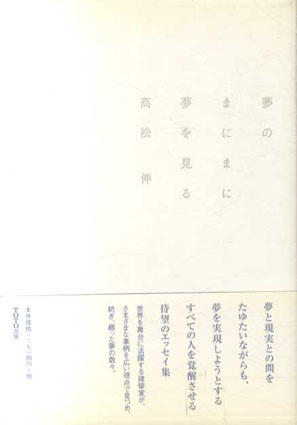 夢の
まにまに
夢を見る
高松 伸
夢と現実との間を
たゆたいながらも、
夢を実現しようとする
すべての人を覚醒させる
待望のエッセイ集
世界を舞台に活躍する建築家が、
さまざまな事柄を広い視点で見つめ、
紡ぎ、綴った夢の数々。
TOTO出版